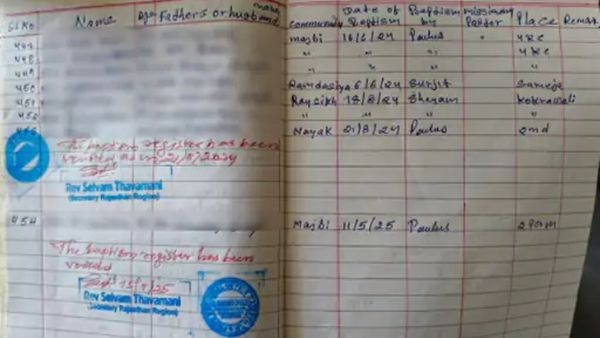 Sl No Name Age Fathers or husband name community Date of Baptism Baptism by missionary Pastor Place Remark
447 majbi 16/6/24 Paulus " 4 KC
448 " " " 4 KC
449 " " "
450 Ramdasiya 6/6/24 Surjit Sameje
451 Raysikh 18/8/24 Shayam
452 " " " "
Nayak 21/8/24 Paulus 2nd
The baptism register has been
verified as on 21/8/2024
Rev Selvam Thavamani
(Secretary Rajasthan Region)
454 Majbi 11/5/25 Paulus
The baptism register has been
verified
Rev Selvam Thavamani
(Secretary Rajasthan Region)